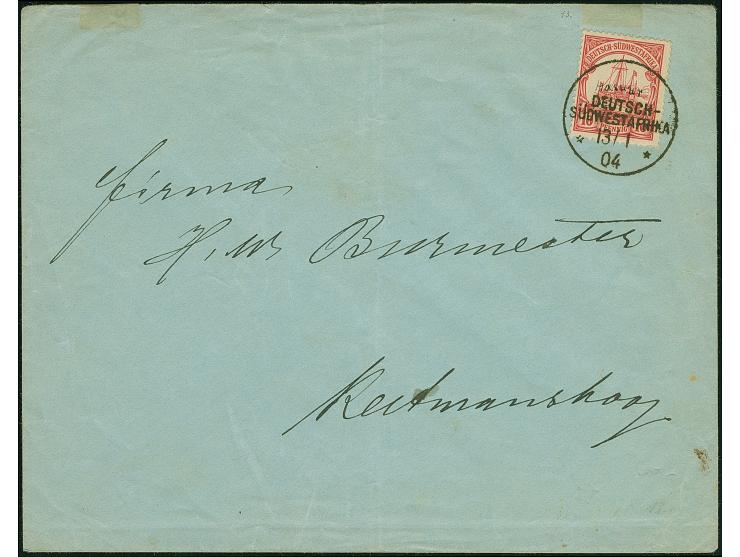 DEUTSCH-SÜDWESTAFRIKA
10
DEUTSCH-
SÜDWESTAFRIKA
13/1
04
Firma
H. W. Burmester
Keetmanshoop